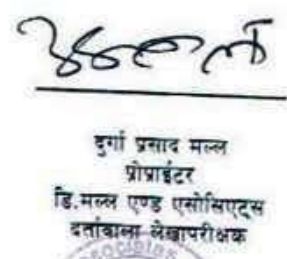 दुर्गा प्रसाद मल्ल
प्रोप्राईटर
डि.मल्ल एण्ड एसोसिएट्स
दर्तावाला लेखापरीक्षक